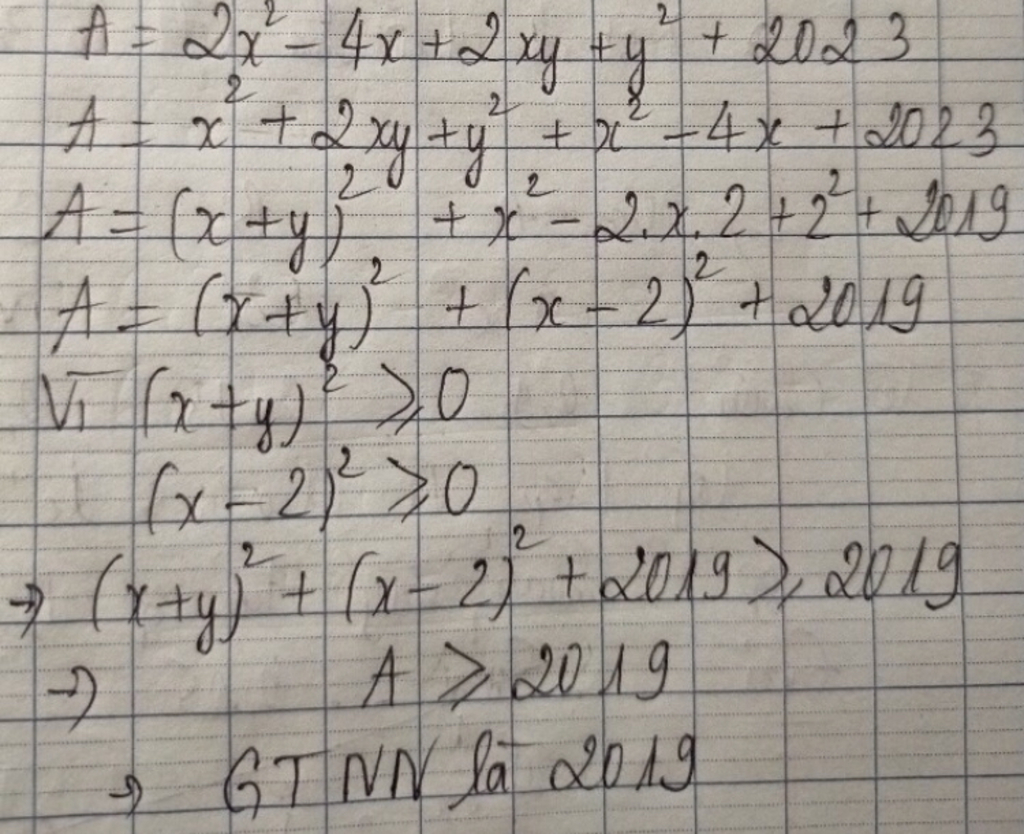 A = 2x² - 4x + 2xy + y² + 2023
A = x² + 2xy + y² + x² - 4x + 2023
A = (x + y)² + x² - 2.x.2 + 2² + 2019
A = (x + y)² + (x - 2)² + 2019
Vì (x + y)² ⩾ 0
(x - 2)² ⩾ 0
→ (x + y)² + (x - 2)² + 2019 ⩾ 2019
→ A ⩾ 2019
→ GTNN là 2019